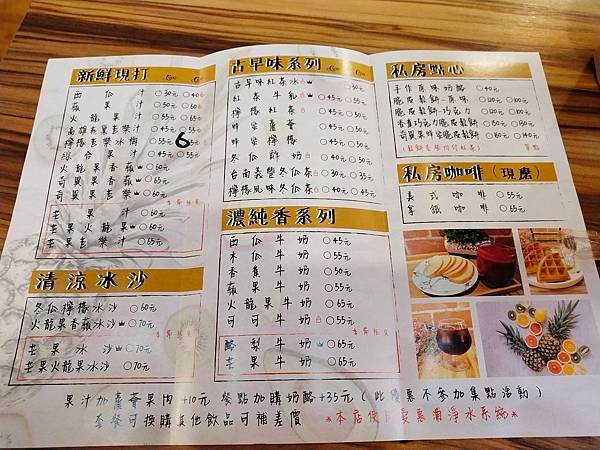 新鮮現打
西瓜汁 ○30元 ○40元
蘋果汁 ○45元 ○55元
火龍果汁 ○55元 ○65元
檸檬百樂冰梅 6
綜合果汁 ○45元 ○55元
火龍果香蘋 ○65元
奇異果香蘋 ○65元
奇異果多樂 ○65元
季節限定
芒果汁 ○60元
芒果火龍果 ○60元
芒果多樂汁 ○65元
清涼冰沙
冬瓜檸檬冰沙 ○60元
火龍果香蘋冰沙 ○70元
季節限定
芒果冰沙 ○70元
芒果火龍果冰沙 ○70元
古早味系列
古早味紅茶冰 ○30元
紅茶牛乳 ○45元 ○55元
檸檬紅茶 ○45元 ○55元
蜂蜜蘆薈 ○35元 ○45元
蜂蜜檸檬 ○35元 ○45元
冬瓜鮮奶 ○40元 ○50元
台南義豐冬瓜茶 ○30元
檸檬風味冬瓜茶 ○40元 ○45元
濃純香系列
西瓜牛奶 ○45元
木瓜牛奶 ○55元
香蕉牛奶 ○50元
蘋果牛奶 ○55元
火龍果牛奶 ○65元
可可牛奶 ○55元
季節限定
酪梨牛奶 ○65元
芒果牛奶 ○65元
私房點心
手作原味奶酪 ○40元
脆皮鬆餅-原味 ○80元 ○100元
脆皮鬆餅-巧克力
香蕉巧克力脆皮鬆餅
奇異果蜂蜜脆皮鬆餅
私房咖啡(現磨)
美式咖啡 ○55元
拿鐵咖啡 ○65元
果汁加蘆薈果肉+10元 餐點加購奶酪+35元(此優惠不參加集點活動)
套餐可換購其他飲品可補差價 *本店使用愛惠浦淨水系統*